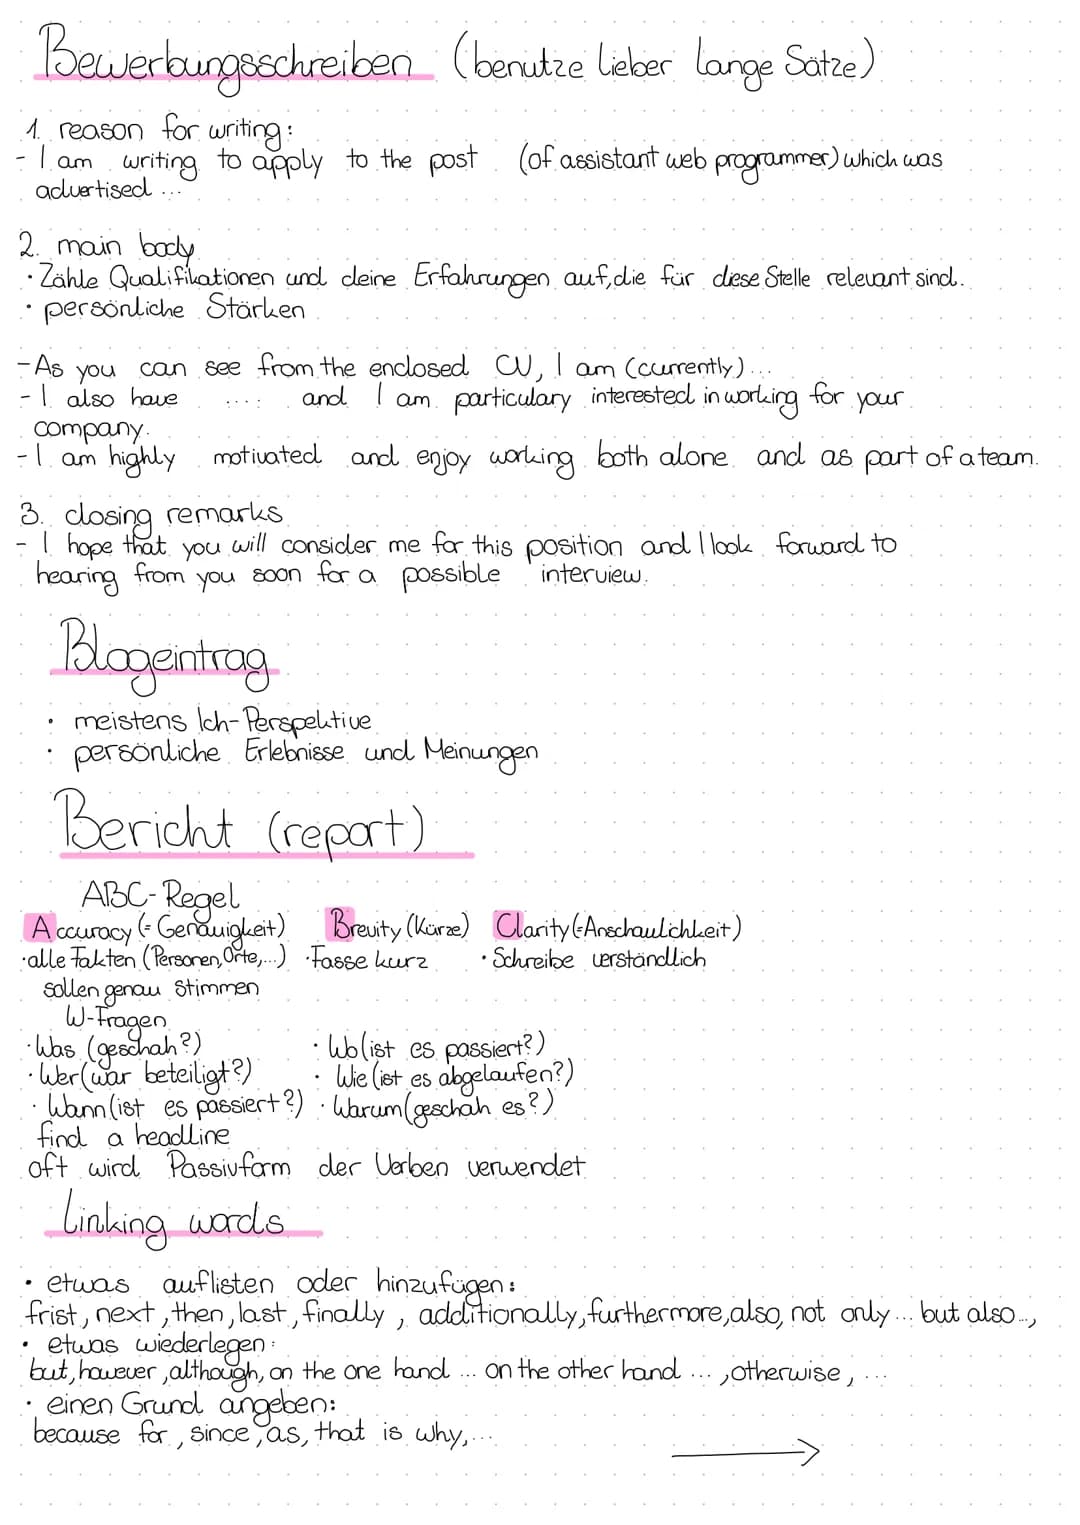 Bewerbungsschreiben (benutze lieber lange Sätze)
1. reason for writing:
- I am writing to apply to the post (of assistant web programmer) which was
advertised ...
2. main body
· Zähle Qualifikationen und deine Erfahrungen auf, die für diese Stelle relevant sind.
· persönliche Stärken
- As you can see from the enclosed CV, I am (currently) ...
- I also have .... and I am particulary interested in working for your
company.
- I am highly motivated and enjoy working both alone and as part of a team.
3. closing remarks
- I hope that you will consider me for this position and I look forward to
hearing from you soon for a possible interview.
Blogeintrag
· meistens Ich-Perspektive
· persönliche Erlebnisse und Meinungen
Bericht (report)
ABC-Regel
Accuracy (= Genauigkeit) Brevity (Kürze) Clarity (=Anschaulichkeit)
· alle Fakten (Personen, Orte,...) · Fasse kurz · Schreibe verständlich
sollen genau stimmen
W-Fragen
· Was (geschah?) · Wo (ist es passiert?)
· Wer (war beteiligt?) · Wie (ist es abgelaufen?)
· Wann (ist es passiert?) · Warum (geschah es?)
find a headline
oft wird Passivform der Verben verwendet
Linking words
· etwas auflisten oder hinzufügen:
frist, next, then, last, finally, additionally, furthermore, also, not only ... but also ...,
· etwas wiederlegen:
but, however, although, on the one hand ... on the other hand ..., otherwise, ...
· einen Grund angeben:
because for, since, as, that is why, ...